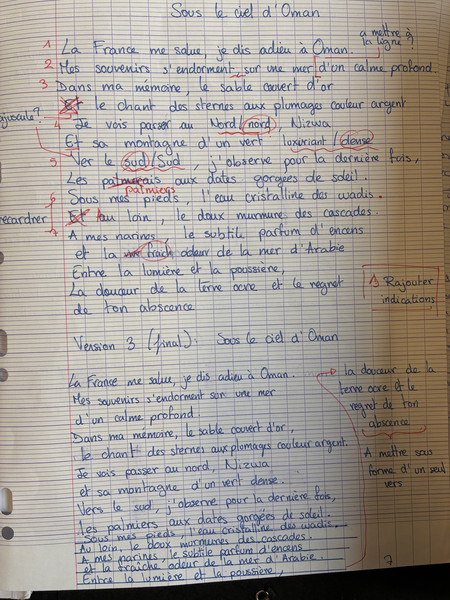 Sous le ciel d'Oman
a mettre à
la ligne?
1 La France me salue, je dis adieu à Oman.
2 Mes souvenirs s'endorment sur une mer d'un calme profond
3 Dans ma mémoire, le sable couvert d'or
Et le chant des sternes aux plumages couleur argent
4 Je vois passer au Nord/nord, Nizwa
Et sa montagne d'un vert luxuriant/dense
5 Ver le sud/Sud, j'observe pour la dernière fois,
Les palmerais aux dates gorgées de soleil.
palmiers
Sous mes pieds, l'eau cristalline des wadis.
recardner
Et Au loin, le doux murmune des cascades.
A mes narines, le subtile parfum d'encens
et la fraich odeur de la mer d'Arabie
Entre la lumière et la poussière,
La douceur de la terre ocre et le regret
de ton abscence
Rajouter
indications
Version 3 (final): Sous le ciel d'Oman
La France me salue, je dis adieu à Oman.
Mes souvenirs s'endorment son une mer
d'un calme profond.
Dans ma mémoire, le sable couvert d'or,
le chant des sternes aux plumages couleur argent.
Je vois passer au nord, Nizwa
et sa montagne d'un vert dense.
Vers le sud, j'observe pour la dernière fois,
Les palmiers aux dates gorgées de soleil.
Sous mes pieds, l'eau cristalline des wadis.
Au loin, le doux murmunes des cascades.
A mes narines, le subtile parfum d'encens
et la fraîche odeur de la mer d'Arabie.
Entre la lumière et la poussière,
la douceur de la
terre ocre et le
regret de ton
abscence
A mettre sous
forme d'un seul
vers
7